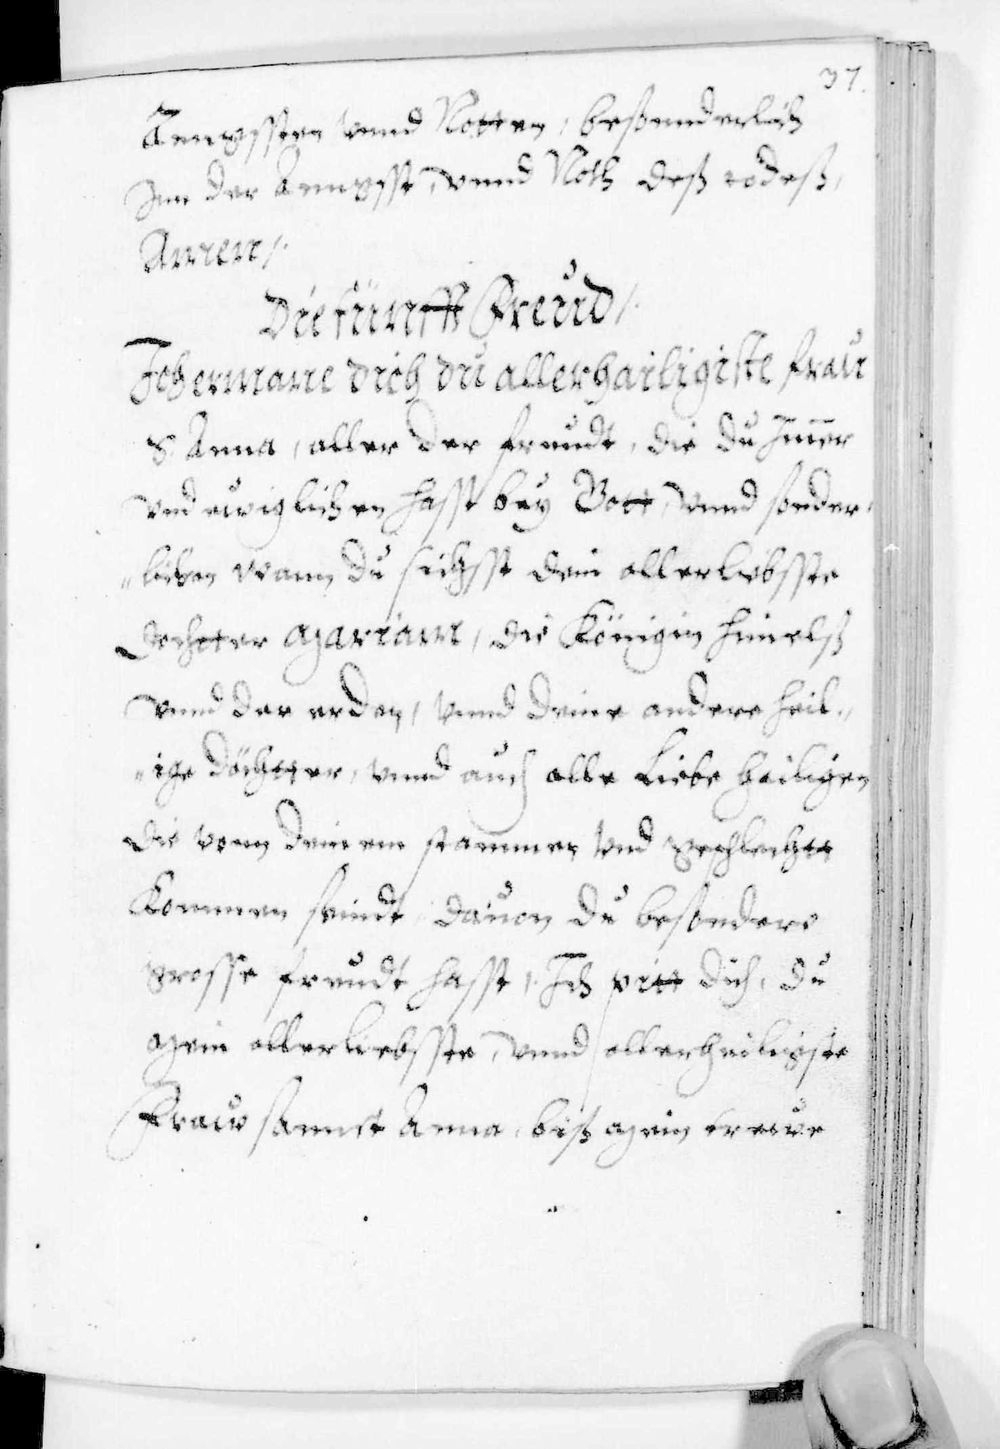 37.
Änngssten vnnd Notten, beßonnderlich
Inn der Anngsst, vnnd Noth deß todeß,
Amen /.
Die fünfft Freüd /.
Ich ermane dich du allerhailigiste fraw
S. Anna, aller der freudt, die du Jm̄er
vnd ewiglichen hasst bey Gott, vnnd sonder„
„lichen wann du sichsst dein allerliebsste
Dochtter Mariam, die Königin himelß
vnnd der erden, vnnd deine andere heil„
„ige Döchtter, vnnd auch alle liebe heiligen
die vonn deinem stammen vnd geschlechtt
Kommen seindt dauon du besondere
grosse freudt hasst, Ich pitt dich, du
mein allerliebsste, vnnd allerheiligste
Fraw sannct Anna, biß mein trewe